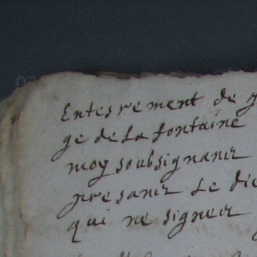 Enterrement de
ge de La fontaine
moy soubsignanz
presanz Le
qui ne signez